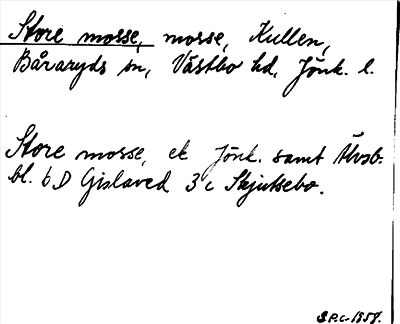 Store mosse, mosse, Kullen,
Båraryds sn, Västbo hd, Jönk. l.
Store mosse, ek Jönk. samt Älvsb.
bl. 6 D Gislaved 3 c Skjutsebo.
1958.